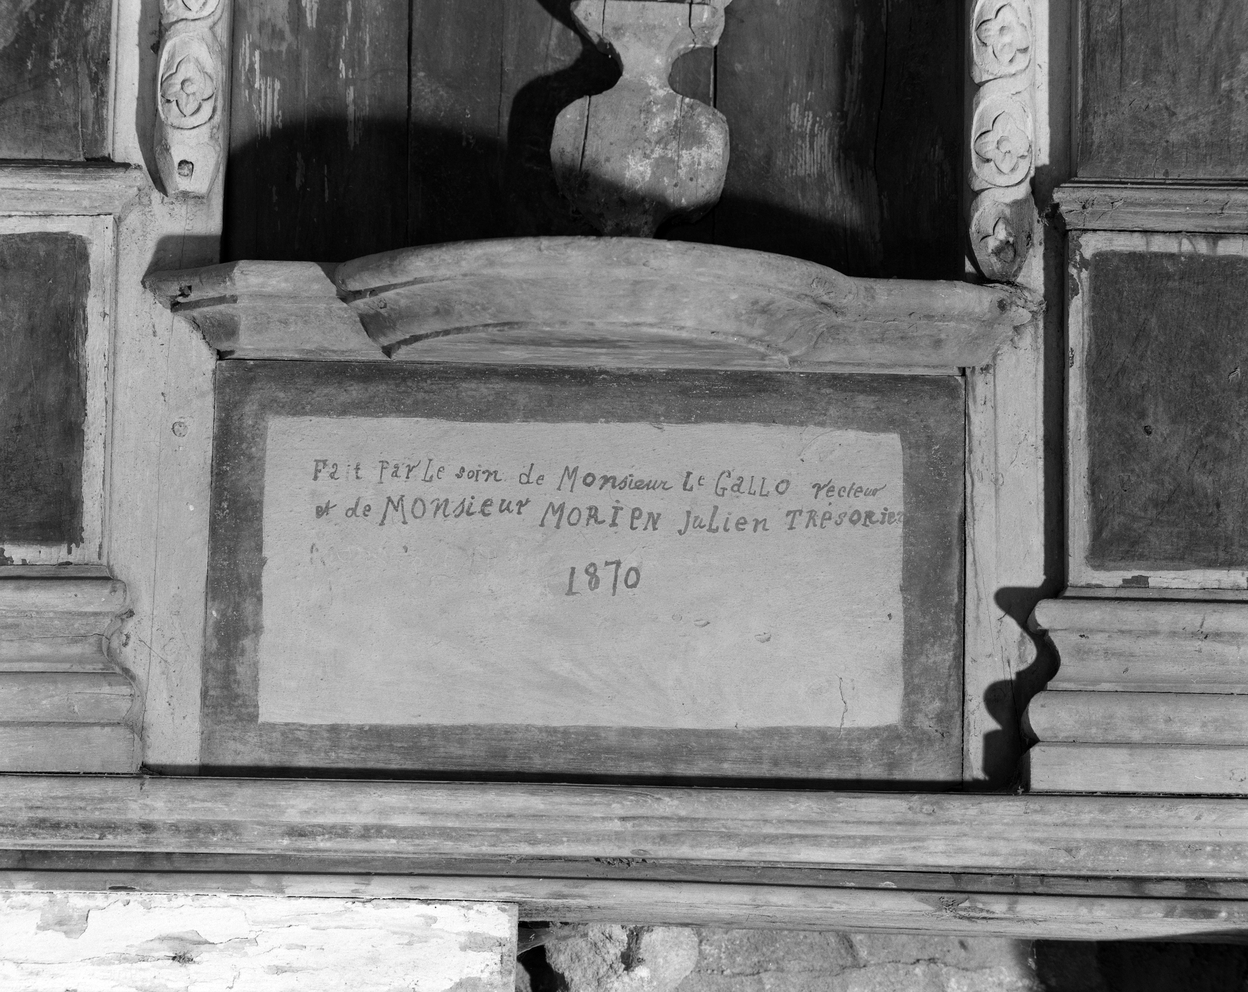 Fait Par Le soin de Monsieur Le GaLLO recteur
et de MONsieur MORIEN JuLien TRésORier
1870